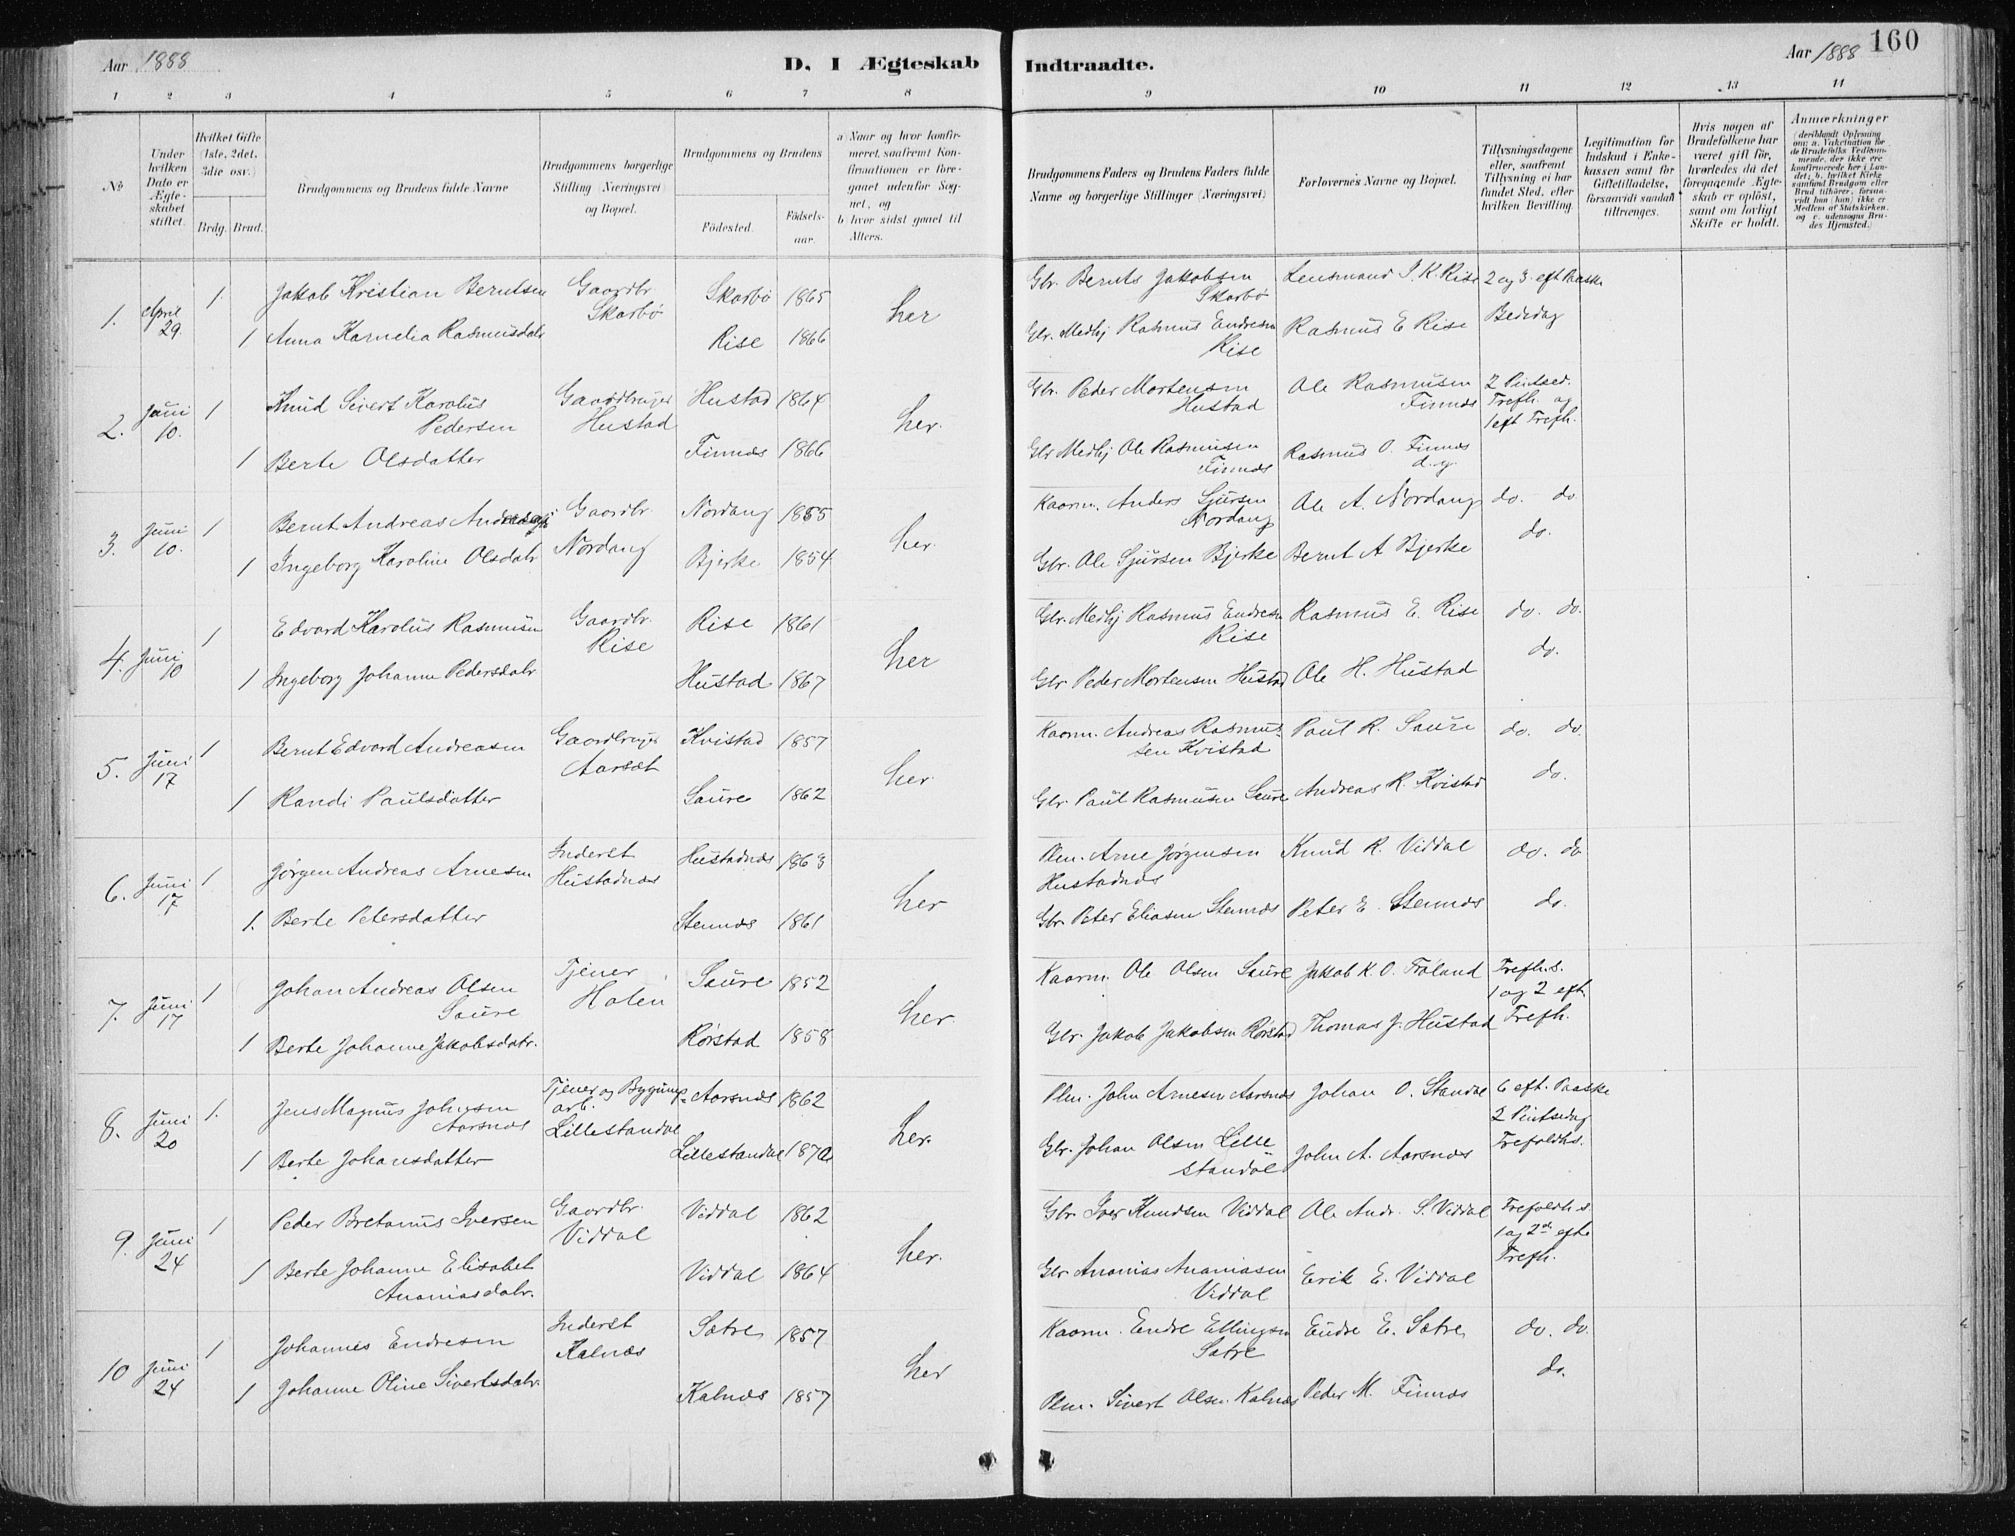 Aar 1888
D. I Ægteskab Indtraadte.
Aar 1888 160
1 2 3 4 5 6 7 8 9 10 11 12 13 14
No
Under hvilken Dato er Ægteskabet stiftet.
Hvilket Gifte (1ste, 2det, 3die osv.)
Brdg. Brud.
Brudgommens og Brudens fulde Navne
Brudgommens borgerlige Stilling (Næringsvei) og Bopæl.
Brudgommens og Brudens
Fødested. Fødselsaar.
a Naar og hvor konfirmeret, saafremt Konfirmationen er foregaaet udenfor Sognet, og
b hvor sidst gaaet til Alters.
Brudgommens Faders og Brudens Faders fulde Navne og borgerlige Stillinger (Næringsvei)
Forlovernes Navne og Bopæl.
Tillysningsdagene eller, saafremt Tillysning ei har fundet Sted, efter hvilken Bevilling.
Legitimation for Indskud i Enkekassen samt for Giftetilladelse, forsaavidt saadan tiltrænges.
Hvis nogen af Brudefolkene har været gift før, hvorledes da det foregaaende Ægteskab er opløst, samt om lovligt Skifte er holdt.
Anmærkninger
(deriblandt Oplysning om: a. Vakcination for de Brudefolks Vedkommende, der ikke ere konfirmerede her i Landet; b. hvilket Kirkesamfund Brudgom eller Brud tilhører, forsaavidt han (hun) ikke er Medlem af Statskirken, og c. udensogns Brudes Hjemsted.)
1. April 29 1 Jakob Kristian Berntsen Gaardbr. Skarbø Skarbø 1865 her Gbr. Bernts Jakobsen Skarbø Lensmand I. K. Rise 2 og 3 eft Paaske
1 Anna Karnelia Rasmusdatr Rise 1866 Gbr. Medhj Rasmus Endresen Rise Rasmus E Rise Bededag
2. Juni 10. 1 Knud Sivert Karolus Pedersen Gaardbruger Hustad Hustad 1864 her. Gbr. Peder Mortensen Hustad Ole Rasmusen Finnæs 2 Pintsed. Trefh. og 1 eft Trefh.
1 Berte Olsdatter Finnæs 1866 Gbr Medhj Ole Rasmusen Finnæs Rasmus O. Finnæs d. y.
3. Juni 10. 1 Bernt Andreas Gaardbr Nordang Nordang 1855 her. Kaarm. Anders Sjursen Nordang Ole A. Nordang do. do
1 Ingeborg Karoline Olsdatr Bjerke 1854 Gbr. Ole Sjursen Bjerke Bernt A Bjerke do.
4. Juni 10 1 Edvard Karolus Rasmusen Gaardbr. Rise Rise 1861 her Gbr. Medhj Rasmus Endresen Rise Rasmus E. Rise do. do.
1 Ingeborg Johanne Pedersdatr Hustad 1867 Gbr Peder Mortensen Hustad Ole H. Hustad do.
5. Juni 17 1 Bernt Edvard Andreasen Gaardbruger Aarsæt Kvistad 1857 her. Kaarm. Andreas Rasmussen Kvistad Paul R. Saure do. do.
1 Randi Paulsdatter Saure 1862 Gbr. Paul Rasmusen Saure Andreas R. Kvistad do.
6. Juni 17 1 Jørgen Andreas Arnesen Inderst Hustadnæs Hustadnæs 1863 her Plm. Arne Jørgensen Hustadnæs Knud R. Viddal do. do
1. Berte Petersdatter Stennæs 1861 Gbr. Peter Eliasen Stennæs Peter E. Stennæs do.
7. Juni 17 1 Johan Andreas Olsen Saure Tjener Holen Saure 1852 her. Kaarm. Ole Olsen Saure Jakob K. O. Frøland Trefh.s. 1 og 2 eft. Trefh.
1 Berte Johanne Jakobsdatr. Rørstad 1858 Gbr. Jakob Jakobsen Rørstad Thomas J. Hustad
8. Juni 20 1. Jens Magnus Johnsen Aarsnæs Tjener og Bygningsarb. Lillestandal Aarsnæs 1862 her. Plm. John Arnesen Aarsnæs Johan O. Standal 6 eft. Paaske 2 Pintsedag Trefoldhs.
1 Berte Johansdatter Lillestandal 1870 Gbr. Johan Olsen Lillestandal John A. Aarsnæs
9. Juni 24 1 Peder Bretanus Iversen Gaardbr. Viddal Viddal 1862 her. Gbr. Iver Knudsen Viddal Ole Andr. S. Viddal Trefoldh.s. 1 og 2de efte Trefh.
1 Berte Johanne Elisabet Ananiasdatr. Viddal 1864 Gbr Ananias Ananiasen Viddal Erik E. Viddal
10 Juni 24 1 Johannes Endresen Inderst Kalnæs Sætre 1857 her Kaarm. Endre Ellingsen Sætre Endre E. Sætre do. do.
1 Johanne Oline Sivertsdatr. Kalnæs 1857 Plm. Sivert Olsen Kalnæs Peder M. Finnæs do.